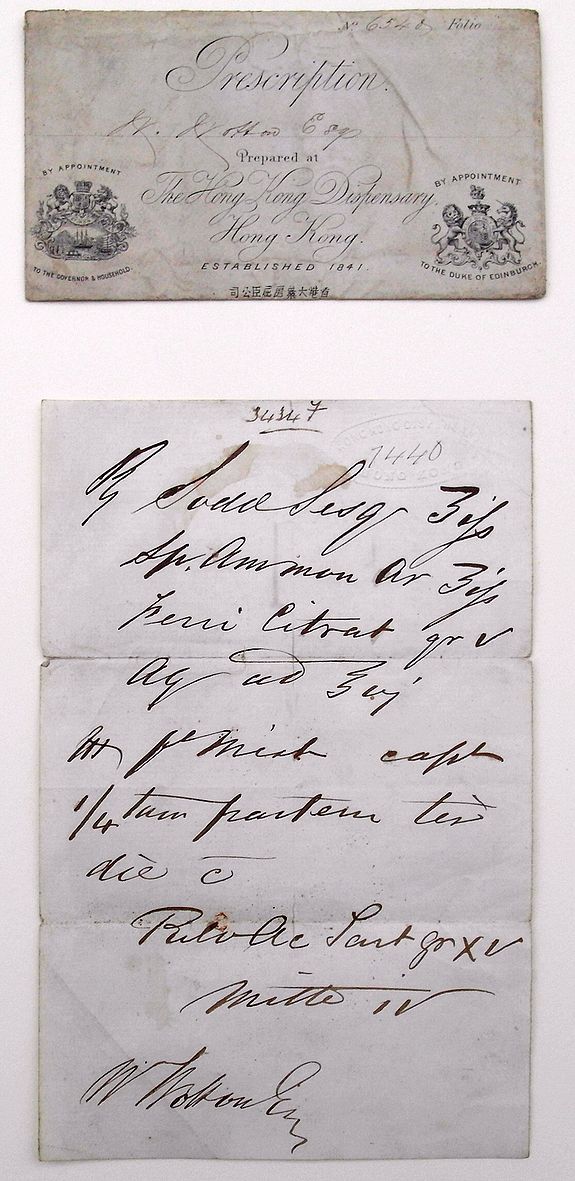 No 6540 Folio
Prescription.
W. Wotton Esqr
Prepared at
BY APPOINTMENT
The Hong Kong Dispensary,
Hong Kong.
TO THE GOVERNOR & HOUSEHOLD.
BY APPOINTMENT
TO THE DUKE OF EDINBURGH.
ESTABLISHED 1841.
司公臣屈房藥大港香
34347
7440
℞ Sodæ Sesq ʒiſs
Sp. Ammon Ar ʒiſs
Ferri Citrat gr v
Aq ad ℥vj
M ft Mist capt
1/4 tam partem ter
die c̄
Pulv Ac Tart gr xv
Mitte iv
W Wotton Esq